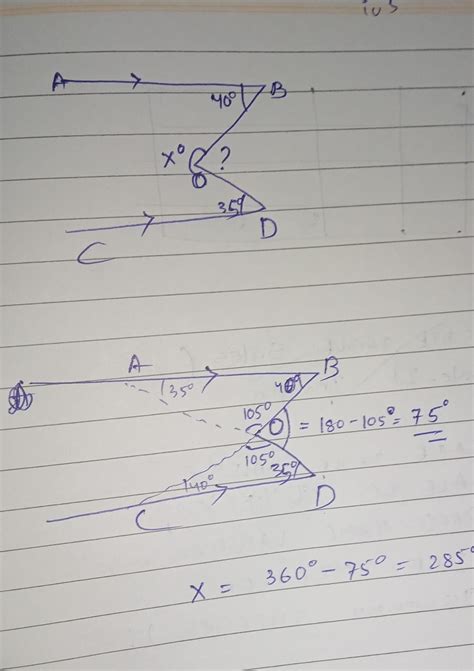 A
B
40°
x° ?
O
35°
D
C
A
B
35°
40°
105°
O = 180-105° = 75°
105°
35°
40°
D
C
x = 360° - 75° = 285°